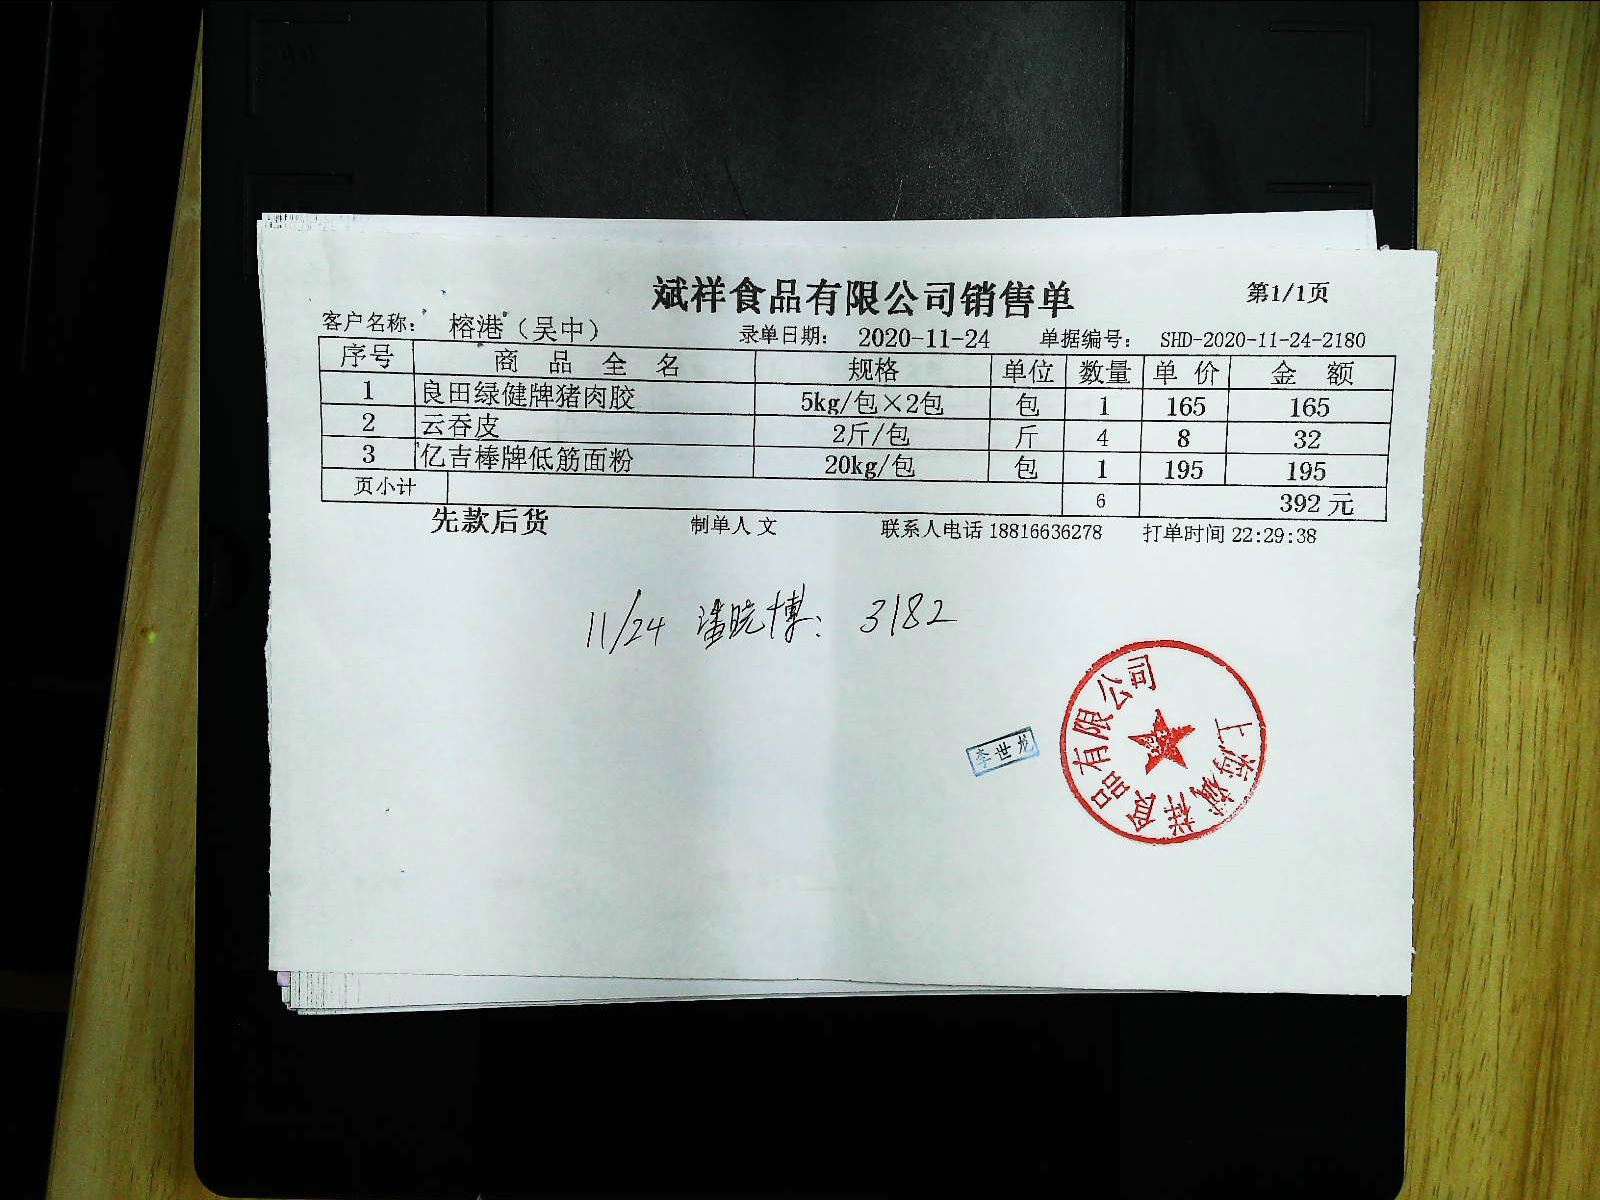 斌祥食品有限公司销售单
第1/1页
客户名称： 榕港（吴中） 录单日期： 2020-11-24 单据编号： SHD-2020-11-24-2180
序号 商品全名 规格 单位 数量 单价 金额
1 良田绿健牌猪肉胶 5kg/包×2包 包 1 165 165
2 云吞皮 2斤/包 斤 4 8 32
3 亿吉棒牌低筋面粉 20kg/包 包 1 195 195
页小计 6 392 元
先款后货 制单人 文 联系人电话 18816636278 打单时间 22:29:38
11/24 潘晓博： 3182
李世龙
上海斌祥食品有限公司